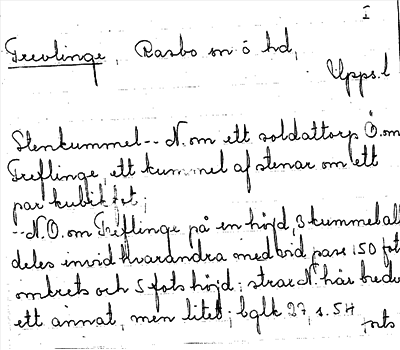 I
Trevlinge, Rasbo sn ö hd,
Upps.l
Stenkummel -- N. om ett soldattorp Ö. om
Treflinge, ett kummel af stenar om ett
par kubikfot;
-- N.O. om Treflinge på en höjd, 3 kummel all
deles invid hvarandra med vid pass 150 fot
omkrets och 5 fots höjd; strax N. här bredv
ett annat, men litet; bglk 27, s. 54
forts